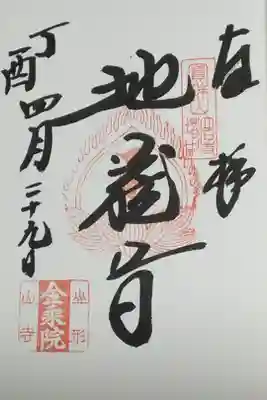 奉拝
地蔵尊
丁酉四月二十九日
山形
金乗院
山寺